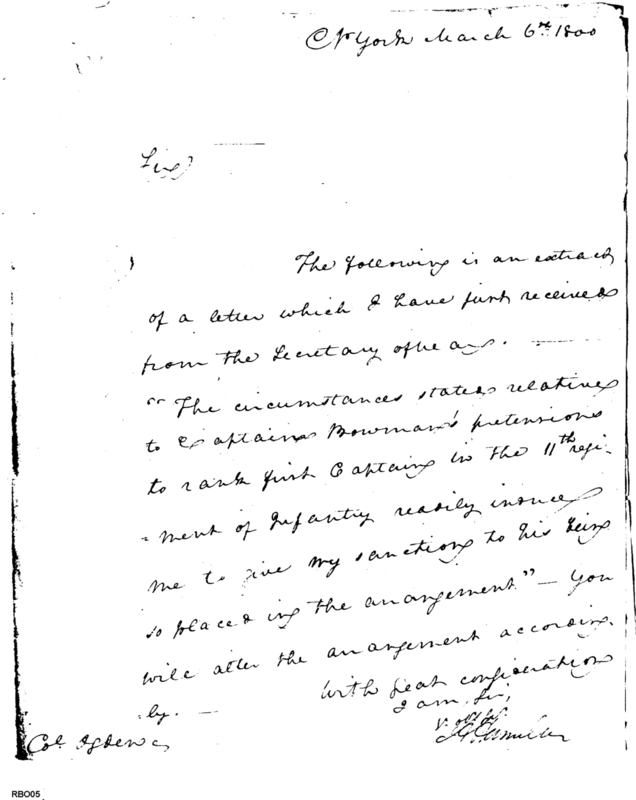 N York March 6th 1800
Sir
The following is an extract
of a letter which I have just received
from the Secretary of War.
"The circumstances stated relative
to Captain Bowman's pretensions
to rank first Captain in the 11th regi-
-ment of Infantry readily induce
me to give my sanction to his being
so placed in the arrangement" — You
will alter the arrangement according-
-ly. —
With great consideration
I am, Sir,
Col. Ogden
RBO05